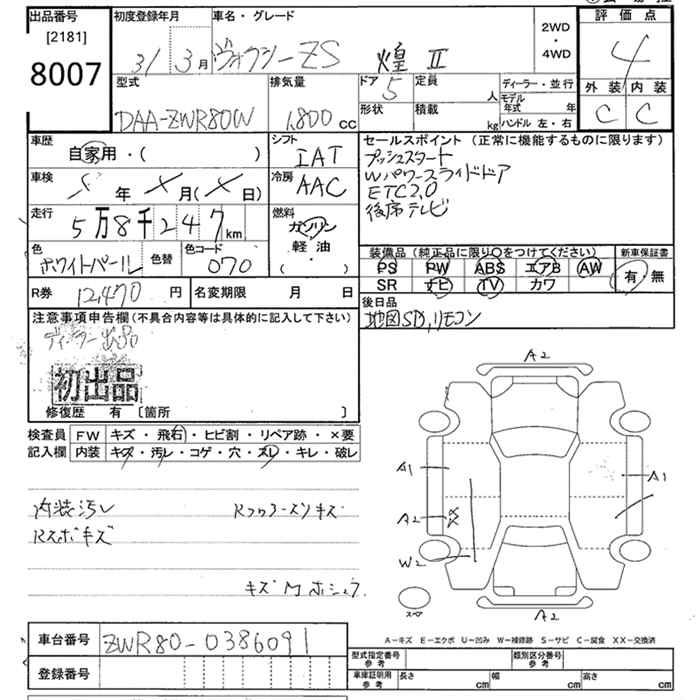 出品番号
[2181]
8007
初度登録年月
31/3月
車名・グレード
ヴォクシー ZS 煌 Ⅱ
2WD
・
4WD
評価点
4
外装 内装
C C
型式
DAA-ZWR80W
排気量
1,800 cc
ドア
5
定員
人
形状
積載
kg
ディーラー・並行
モデル年式 年
ハンドル 左・右
車歴
自家用・( )
シフト
IAT
車検
年 月( 日)
冷房
AAC
走行
5万8千247km
燃料
ガソリン
軽油
・( )
色
ホワイトパール
色替
色コード
070
R券
12,470円
名変期限 月 日
セールスポイント(正常に機能するものに限ります)
プッシュスタート
Wパワースライドドア
ETC2.0
後席テレビ
装備品(純正品に限り○をつけてください)
PS PW ABS エアB AW
SR ナビ TV カワ
新車保証書
有・無
後日品
地図SD,リモコン
注意事項申告欄(不具合内容等は具体的に記入して下さい)
ディーラー出品
初出品
修復歴 有 〔箇所 〕
検査員記入欄
FW キズ・飛石・ヒビ割・リペア跡・×要
内装 キズ・汚レ・コゲ・穴・スレ・キレ・破レ
内装汚レ
Rスポキズ
キズ
A2
A1
A1
A2
W2
A2
A-キズ E-エクボ U-凹み W-補修跡 S-サビ C-腐食 XX-交換済
車台番号
ZWR80-0386091
登録番号
型式指定番号
参考
類別区分番号
参考
車庫証明用
参考
長さ cm 幅 cm 高さ cm